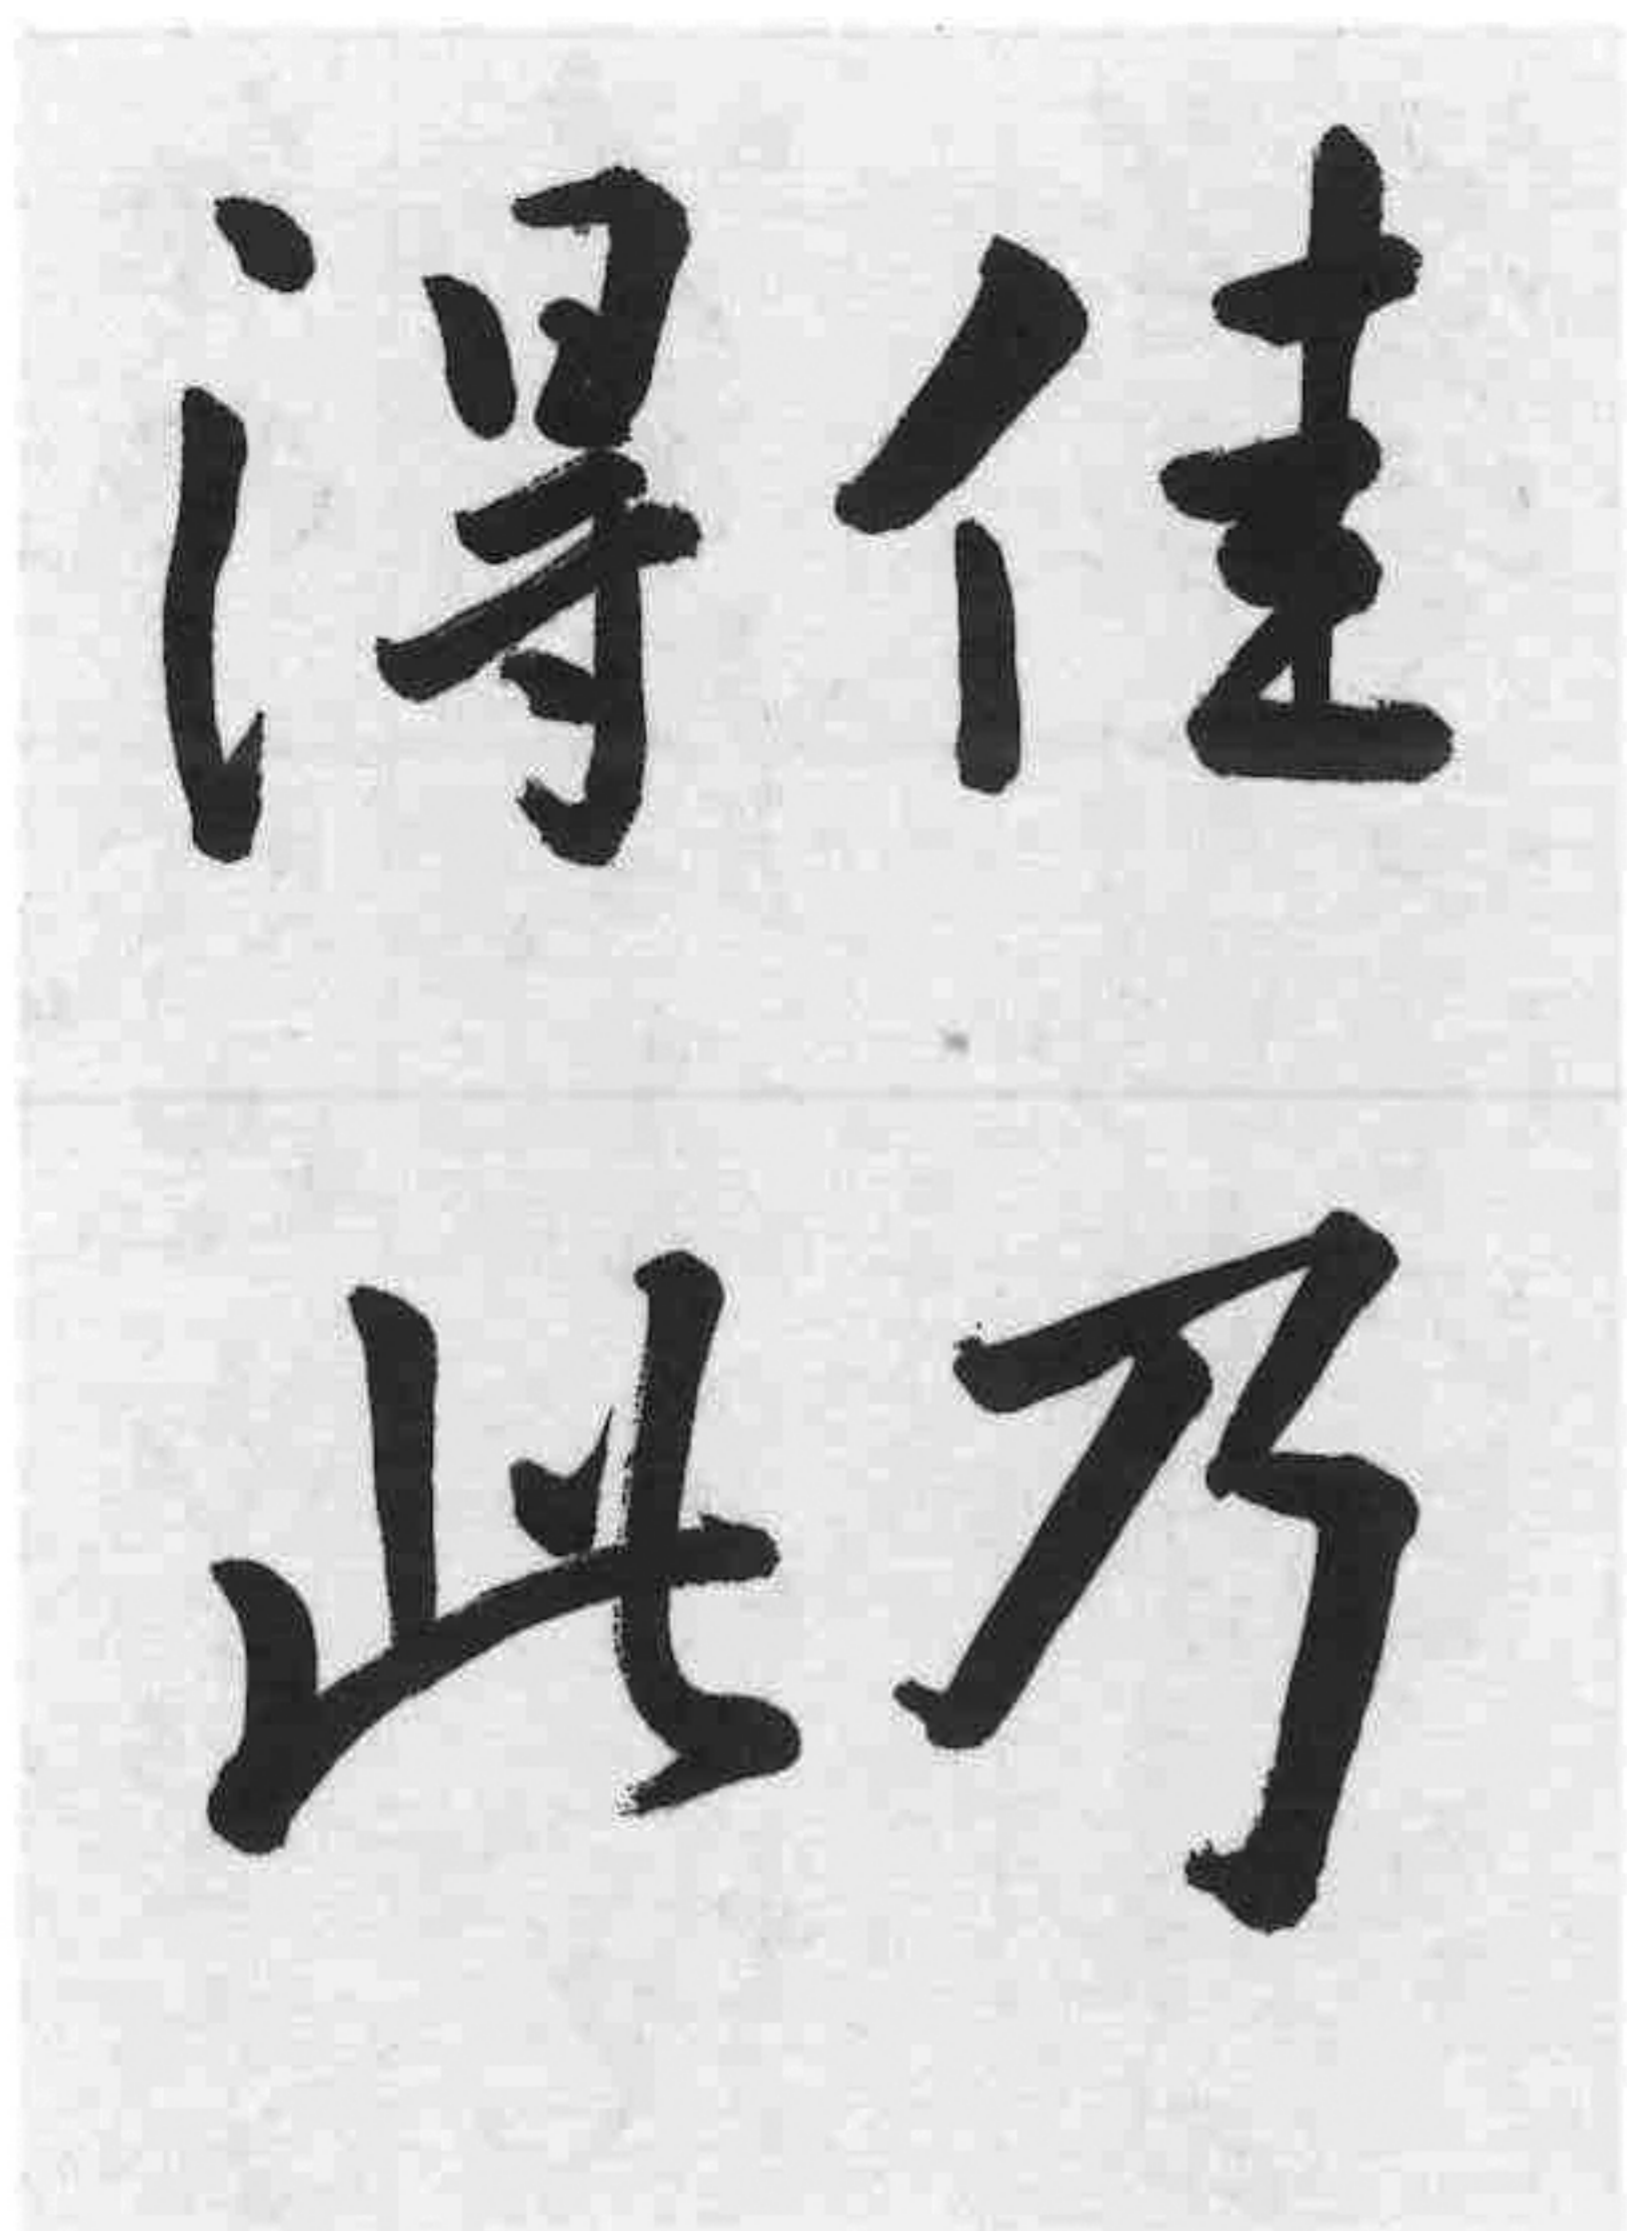 佳乃
得此